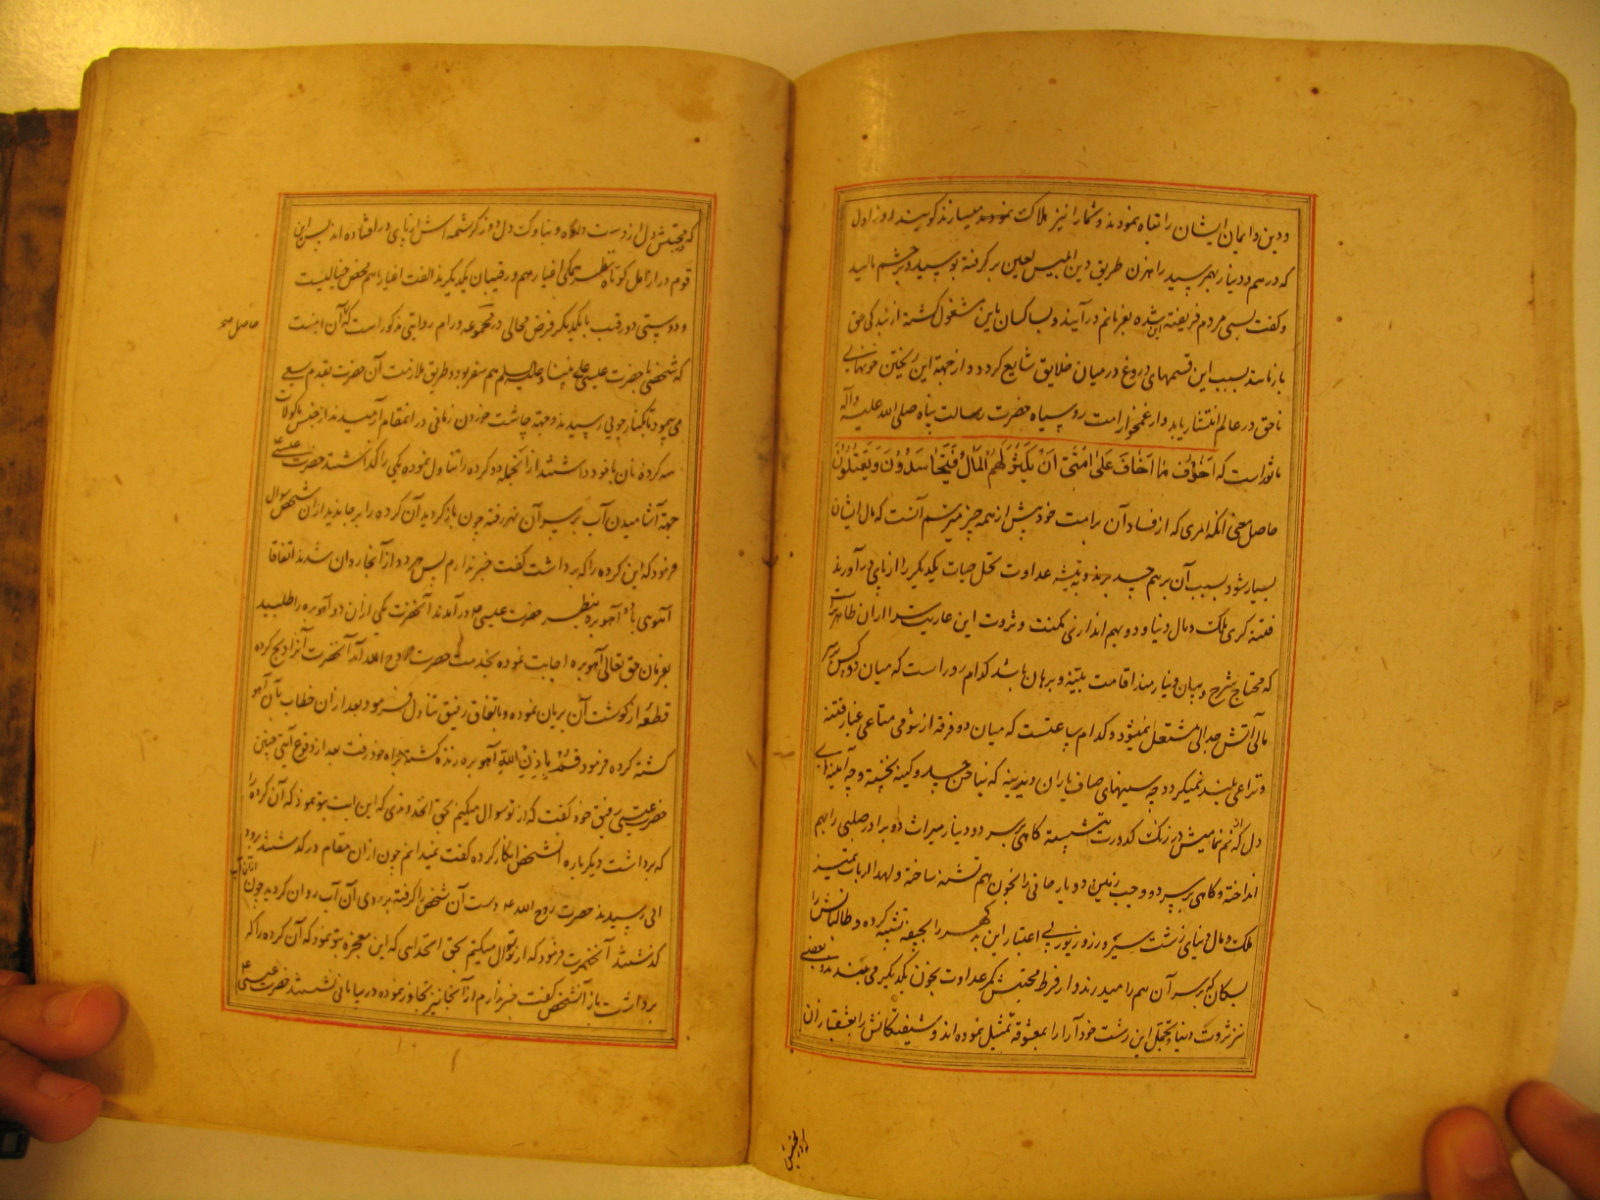 و دین و ایمان ایشان را تباه نمودند و شمارا نیز هلاکت میسازند گویند اول
که درهم و دینار بهم رسید راهزن طریق دین ابلیس لعین بر گرفته بوسید و بر چشم مالید
و گفت بسی مردم فریفته این شده بفرمانم درآیند و بسا کسان باین مشغول گشته از بندگی حق
باز مانند بسبب این قسمهای دروغ در میان خلایق شایع گردد و از جهة این ریختن خونهای
ناحق در عالم انتشار یابد و از غمخوار امت روسیاه حضرت رسالت پناه صلی الله علیه وآله
ماثور است که اَخْوَفُ مٰا اَخٰافُ عَلیٰ اُمَّتی اَنْ یَکْثُرَ لَهُمُ الْمٰالُ فَیَتَحٰاسَدُونَ وَیَقْتَتِلُونَ
حاصل معنی آنکه امری که از فساد آن بر امت خود بیش از همه چیز میترسم آنست که مال ایشان
بسیار شود بسبب آن بر هم حسد برند و بتیشه عداوت نخل حیات یکدیگر را از پای درآورند
فتنه کری ملک و مال دنیا و دو بهم اندازی مکنت و ثروت این عاریت سرا ازان ظاهرتر است
که محتاج بشرح و بیان و نیازمند اقامت بینه و برهان باشد کدام روز است که میان دو کس بر سر
مالی آتش جدالی مشتعل نمیشود و کدام ساعتست که میان دو فرقه از شومی متاعی غبار فتنه
و نزاعی بلند نمیگردد چه سینهای صاف یاران دیرینه که بناخن حسد و کینه نخسته و چه آینهای
دل که از نم نمامیش در زنگ کدورت ننشسته گاهی بر سر دو دینار میراث دو برادر صلبی را بهم
انداخته و گاهی بر سر دو وجب زمین دو یار جانی را بخون هم تشنه ساخته و لهذا ارباب تمیز
ملک و مال دنیای زشت سیر و زر و زیور بی اعتبار این را بجیفه تشبیه کرده و طالبانش را
بسگان که بر سر آن هم را میدرند و از فرط محبتش کمر عداوت بخون یکدیگر می بندند و بعضی
نیز ثروت دنیا و تجمل این زشت خودآرا را بمعشوقه تمثیل نموده اند و شیفتگانش را بعشقبازان
که در محبتش
که محبتش دل از دست و بناوک دل دوز کرشمه اش از پای در افتاده اند پس این
قوم دراز امل کوتاه نظر همگی اغیار هم و رقیبان یکدیگرند الفت اغیار با هم محض خیالیست
و دوستی دو رقیب با یکدیگر فرض محالی در مجموعه ورام روایتی مذکور است که مآل آن اینست
حاصل
که شخصی با حضرت عیسی علی نبینا و علیه السلم هم سفر بود و طریق ملازمت آن حضرت بقدم سعی
می پیمود تا بکنار جویی رسیدند و جهة چاشت خوردن زمانی در آنمقام آرمیدند از جنس ماکولات
سه کرده نان با خود داشتند از آنجمله دو کرده را تناول نموده یکی را گذاشتند حضرت عیسی ع
جهة آشامیدن آب بر سر آن نهر رفته چون باز گردید آن کرده را بر جا ندید از آن شخص سوال
فرمود که این کرده را که برداشت گفت خبر ندارم پس هر دو از آنجا روان شدند اتفاقا
آهویی با دو آهوبره بنظر حضرت عیسی ع درآمدند آنحضرت یکی از ان دو آهوبره را طلبید
بفرمان حق تعالی آهوبره اجابت نموده بخدمت حضرت روح الله آمد آنحضرت آنرا ذبح کرده
قطعه از گوشت آن بریان نموده و باتفاق رفیق تناول فرمود بعد از ان خطاب بآن آهو
کشته کرده فرمود قُمْ بِاِذْنِ اللّٰهِ آهوبره زنده گشته همراه خود رفت بعد از وقوع آیتی چنین
حضرت عیسی برفیق خود گفت که از تو سوال میکنم بحق آنخداوندی که این آیت بتو نمود که آن کرده را
که برداشت دیگر باره آنشخص انکار کرده گفت نمیدانم چون از ان مقام درگذشتند برود
آبی رسیدند حضرت روح الله ع دست آن شخص را گرفته بر روی آن آب روان گردید چون از آن آب
گذشتند آنحضرت فرمود که از تو سوال میکنم بحق آنخدایی که این معجزه بتو نمود که آن کرده را که
برداشت باز آنشخص گفت خبر ندارم از آنجا نیز تجاوز نموده در بیابانی نشستند حضرت عیسی ع